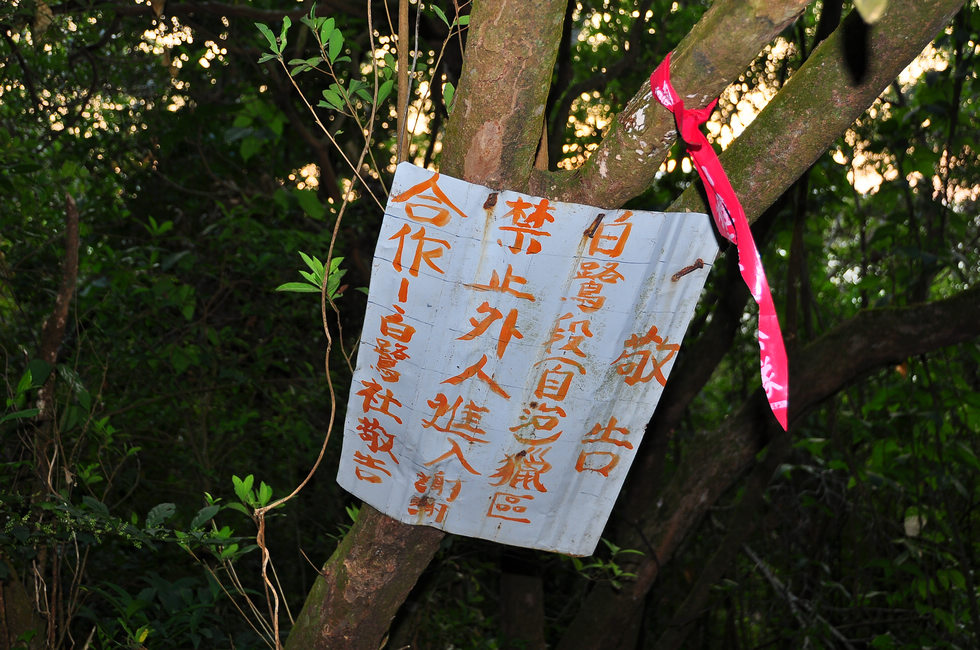 敬告
白鷺段(自治獵區
禁止外人進入謝謝
合作-白鷺社敬告